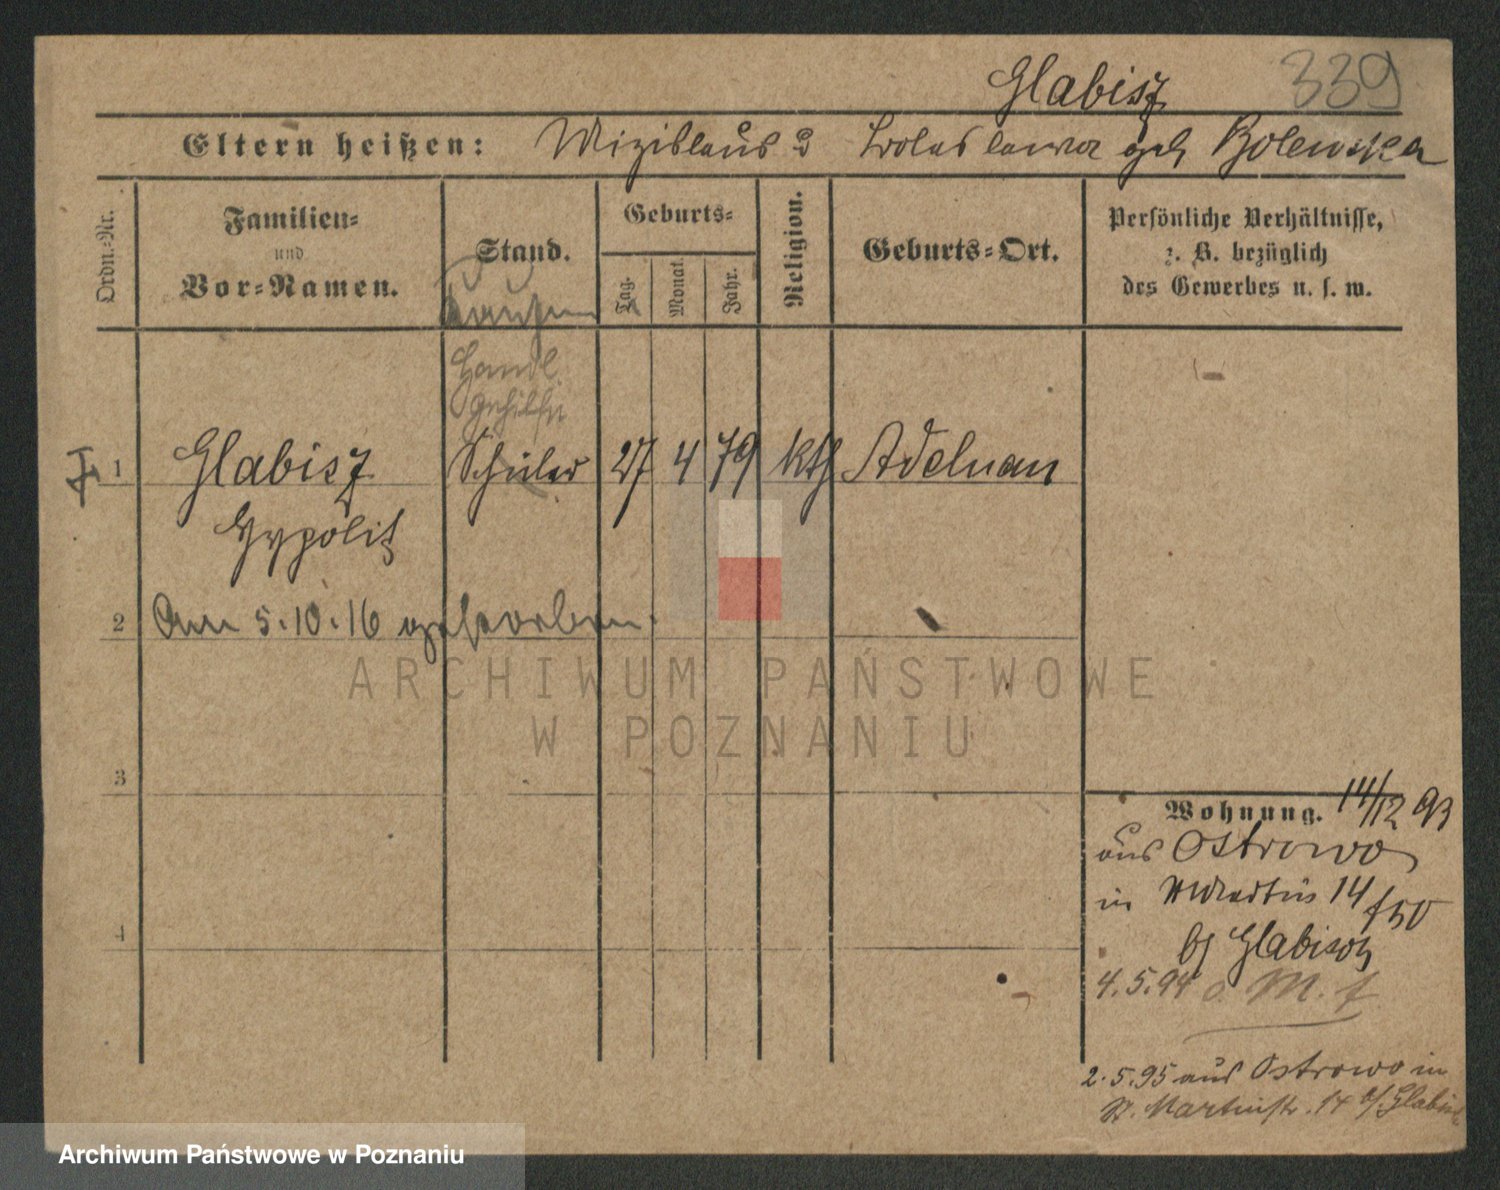 Glabisz 339
Eltern heißen: Mizislaus u Wladislawa geb Bolewska
Ordn.-Nr.
Familien-
und
Vor-Namen.
Stand.
Geburts-
Tag.
Monat.
Jahr.
Religion.
Geburts-Ort.
Persönliche Verhältnisse,
z. B. bezüglich
des Gewerbes u. s. w.
Kaufm
Handl.
Gehilfe
1 Glabisz Schüler 27 4 79 kth Adelnau
Hypolit
2 Am 5.10.16 gestorben.
ARCHIWUM PAŃSTWOWE
W POZNANIU
3
4
Wohnung. 14/12 93
aus Ostrowo
in St Martin 14
b/ Glabisch
4.5.94
2.5.95 aus Ostrowo in
St. Martinstr. 14 b/. Glabisz
Archiwum Państwowe w Poznaniu